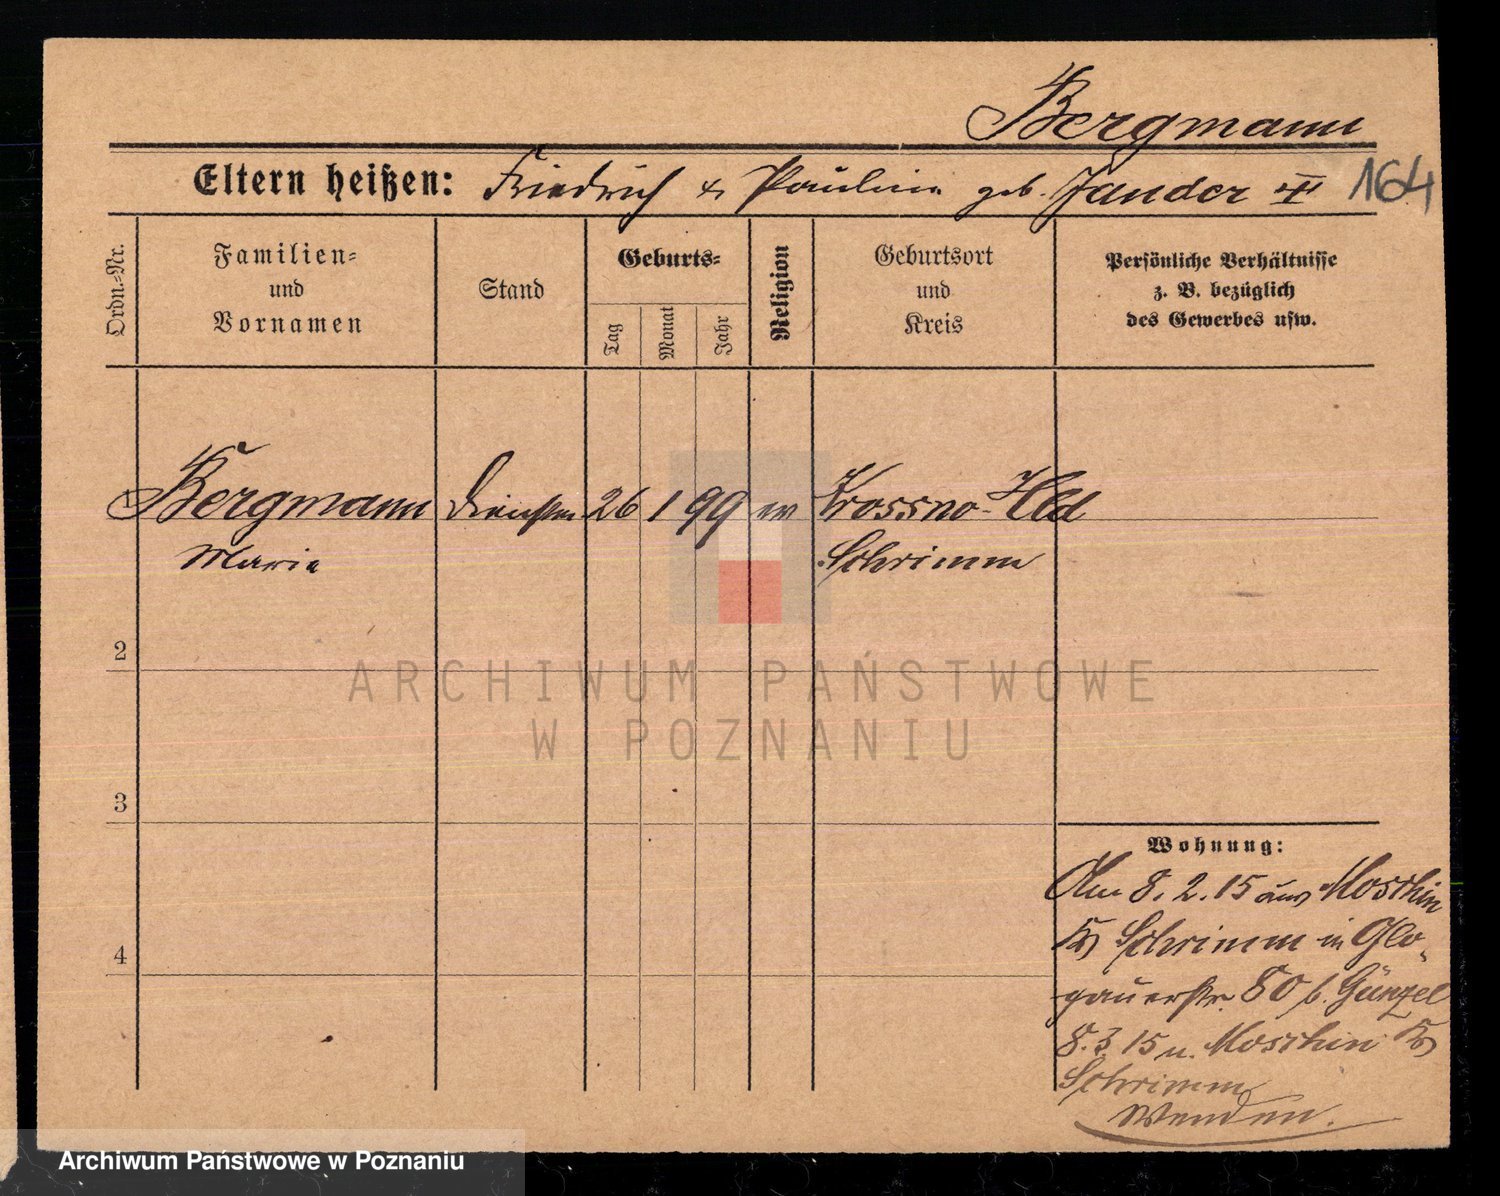 Bergmann
Eltern heißen: Friedrich & Pauline geb. Jander III 164
Ordn.-Nr.
Familien-
und
Vornamen
Stand
Geburts-
Tag
Monat
Jahr
Religion
Geburtsort
und
Kreis
Persönliche Verhältnisse
z. B. bezüglich
des Gewerbes usw.
1 Bergmann Dienstm 26 1 99 ev Krossno-Hld
Marie Schrimm
2
3
4
ARCHIWUM PAŃSTWOWE
W POZNANIU
Wohnung:
Am 8. 2. 15 aus Moschin
Kr Schrimm in Glo-
gauerstr. 80 b. Günzel
8. 3. 15 n. Moschin Kr
Schrimm
Wenden.
Archiwum Państwowe w Poznaniu